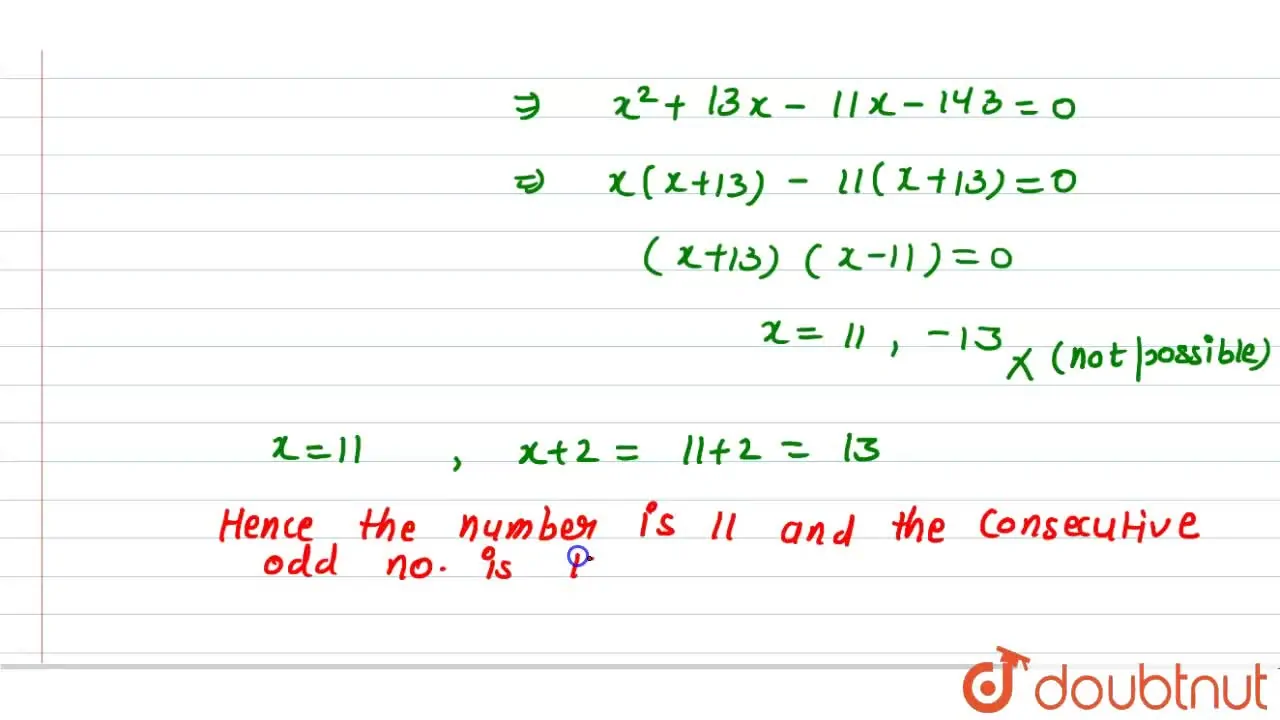 ⇒ x² + 13x - 11x - 143 = 0
⇒ x(x+13) - 11(x+13) = 0
(x+13) (x-11) = 0
x = 11, -13 × (not possible)
x = 11, x+2 = 11+2 = 13
Hence the number is 11 and the consecutive
odd no. is 1
doubtnut